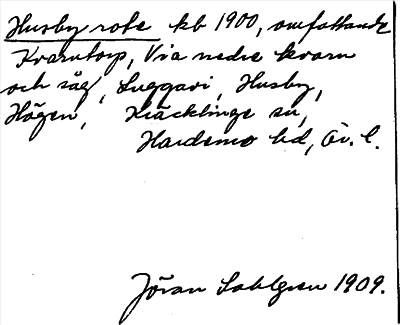 Husby rote kb 1900, omfattande
Kvarntorp, Via nedre kvarn
och såg, Luggavi, Husby,
Högen, Kräcklinge sn,
Hardemo hd, Ör. l.
Jöran Sahlgren 1909.